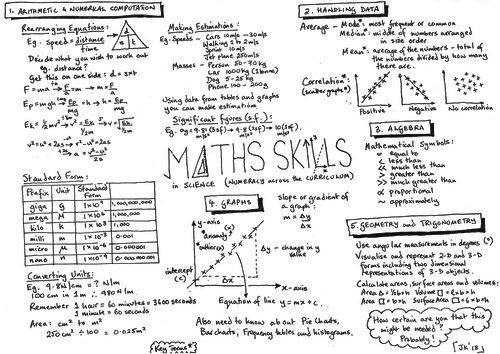 1. ARITHMETIC & NUMERICAL COMPUTATION
Rearranging Equations:
Eg. Speed = distance
time
d
s t
Decide what you wish to work out
eg. distance?
Get this on one side: d = s×t
F = ma → F/a = m → m = F/a
Ep = mgh → Ep/mg = h → h = Ep/mg
Standard Form:
Prefix Unit Standard Form
giga G 1×10⁹ 1,000,000,000
mega M 1×10⁶ 1,000,000
kilo k 1×10³ 1,000
milli m 1×10⁻³ 0.001
micro μ 1×10⁻⁶ 0.000001
nano n 1×10⁻⁹ 0.000000001
Converting Units:
Eg. 9.81 cm = ? N/m
100cm in 1m ∴ 980 N/m.
Remember 1 hour = 60 minutes = 3600 seconds
1 minute = 60 seconds
Area: cm² to m²
250cm² ÷ 100 = 0.025m²
Making Estimations:
Eg. Speeds - Cars 10m/s - 30m/s
Walking 1 to 2m/s
Sprint 10m/s
Jet plane 250m/s
Masses - Person 50-70kg
Car 1000kg (1 tonne)
Dog 5-25kg
Phone 100-200g
Using data from tables and graphs
you can make estimation.
Significant figures (s.f.):
Eg. 9.81 (3sf) → 9.8 (2sf) → 10 (1sf)
MATHS SKILLS
in SCIENCE (NUMERACY across the CURRICULUM)
4. GRAPHS
y-axis
"anomaly"
(outlier)
(x)
intercept
(c)
Δx
Δy - change in y value
x-axis
slope or gradient of
a graph:
m = Δy
Δx
Equation of line y = mx + c.
Also need to know about Pie Charts,
Bar charts, Frequency tables and histograms.
Key Terms
2. HANDLING DATA
Average - Mode: most frequent or common
Median: middle of numbers arranged
in size order
Mean: average of the numbers - total of
the numbers divided by how many
there are.
Correlation:
(scatter graphs)
Positive Negative No correlation
3. ALGEBRA
Mathematical Symbols:
= equal to
< less than
≪ much less than
> greater than
≫ much greater than
∝ proportional
~ approximately
5. GEOMETRY and TRIGONOMETRY
Use angular measurements in degrees (°)
Visualise and represent 2-D and 3-D
forms including two dimensional
representations of 3-D objects.
Calculate areas, surface areas and volumes:
How certain are you that this
might be needed?
Probably!
JK '18